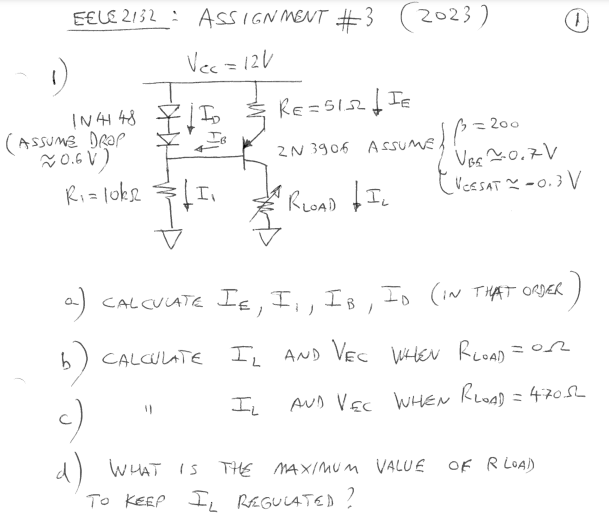 EELE2132 : ASSIGNMENT #3 (2023) 1
1) Vcc = 12V
RE = 51Ω IE
1N4148 ID
(ASSUME DROP ≈ 0.6V) IB
2N3906 ASSUME { β = 200
VBE ≈ -0.7V
VCESAT ≈ -0.3V
R1 = 10kΩ I1
RLOAD IL
a) CALCULATE IE, I1, IB, ID (IN THAT ORDER)
b) CALCULATE IL AND VEC WHEN RLOAD = 0Ω
c) " IL AND VEC WHEN RLOAD = 470Ω
d) WHAT IS THE MAXIMUM VALUE OF RLOAD
TO KEEP IL REGULATED?